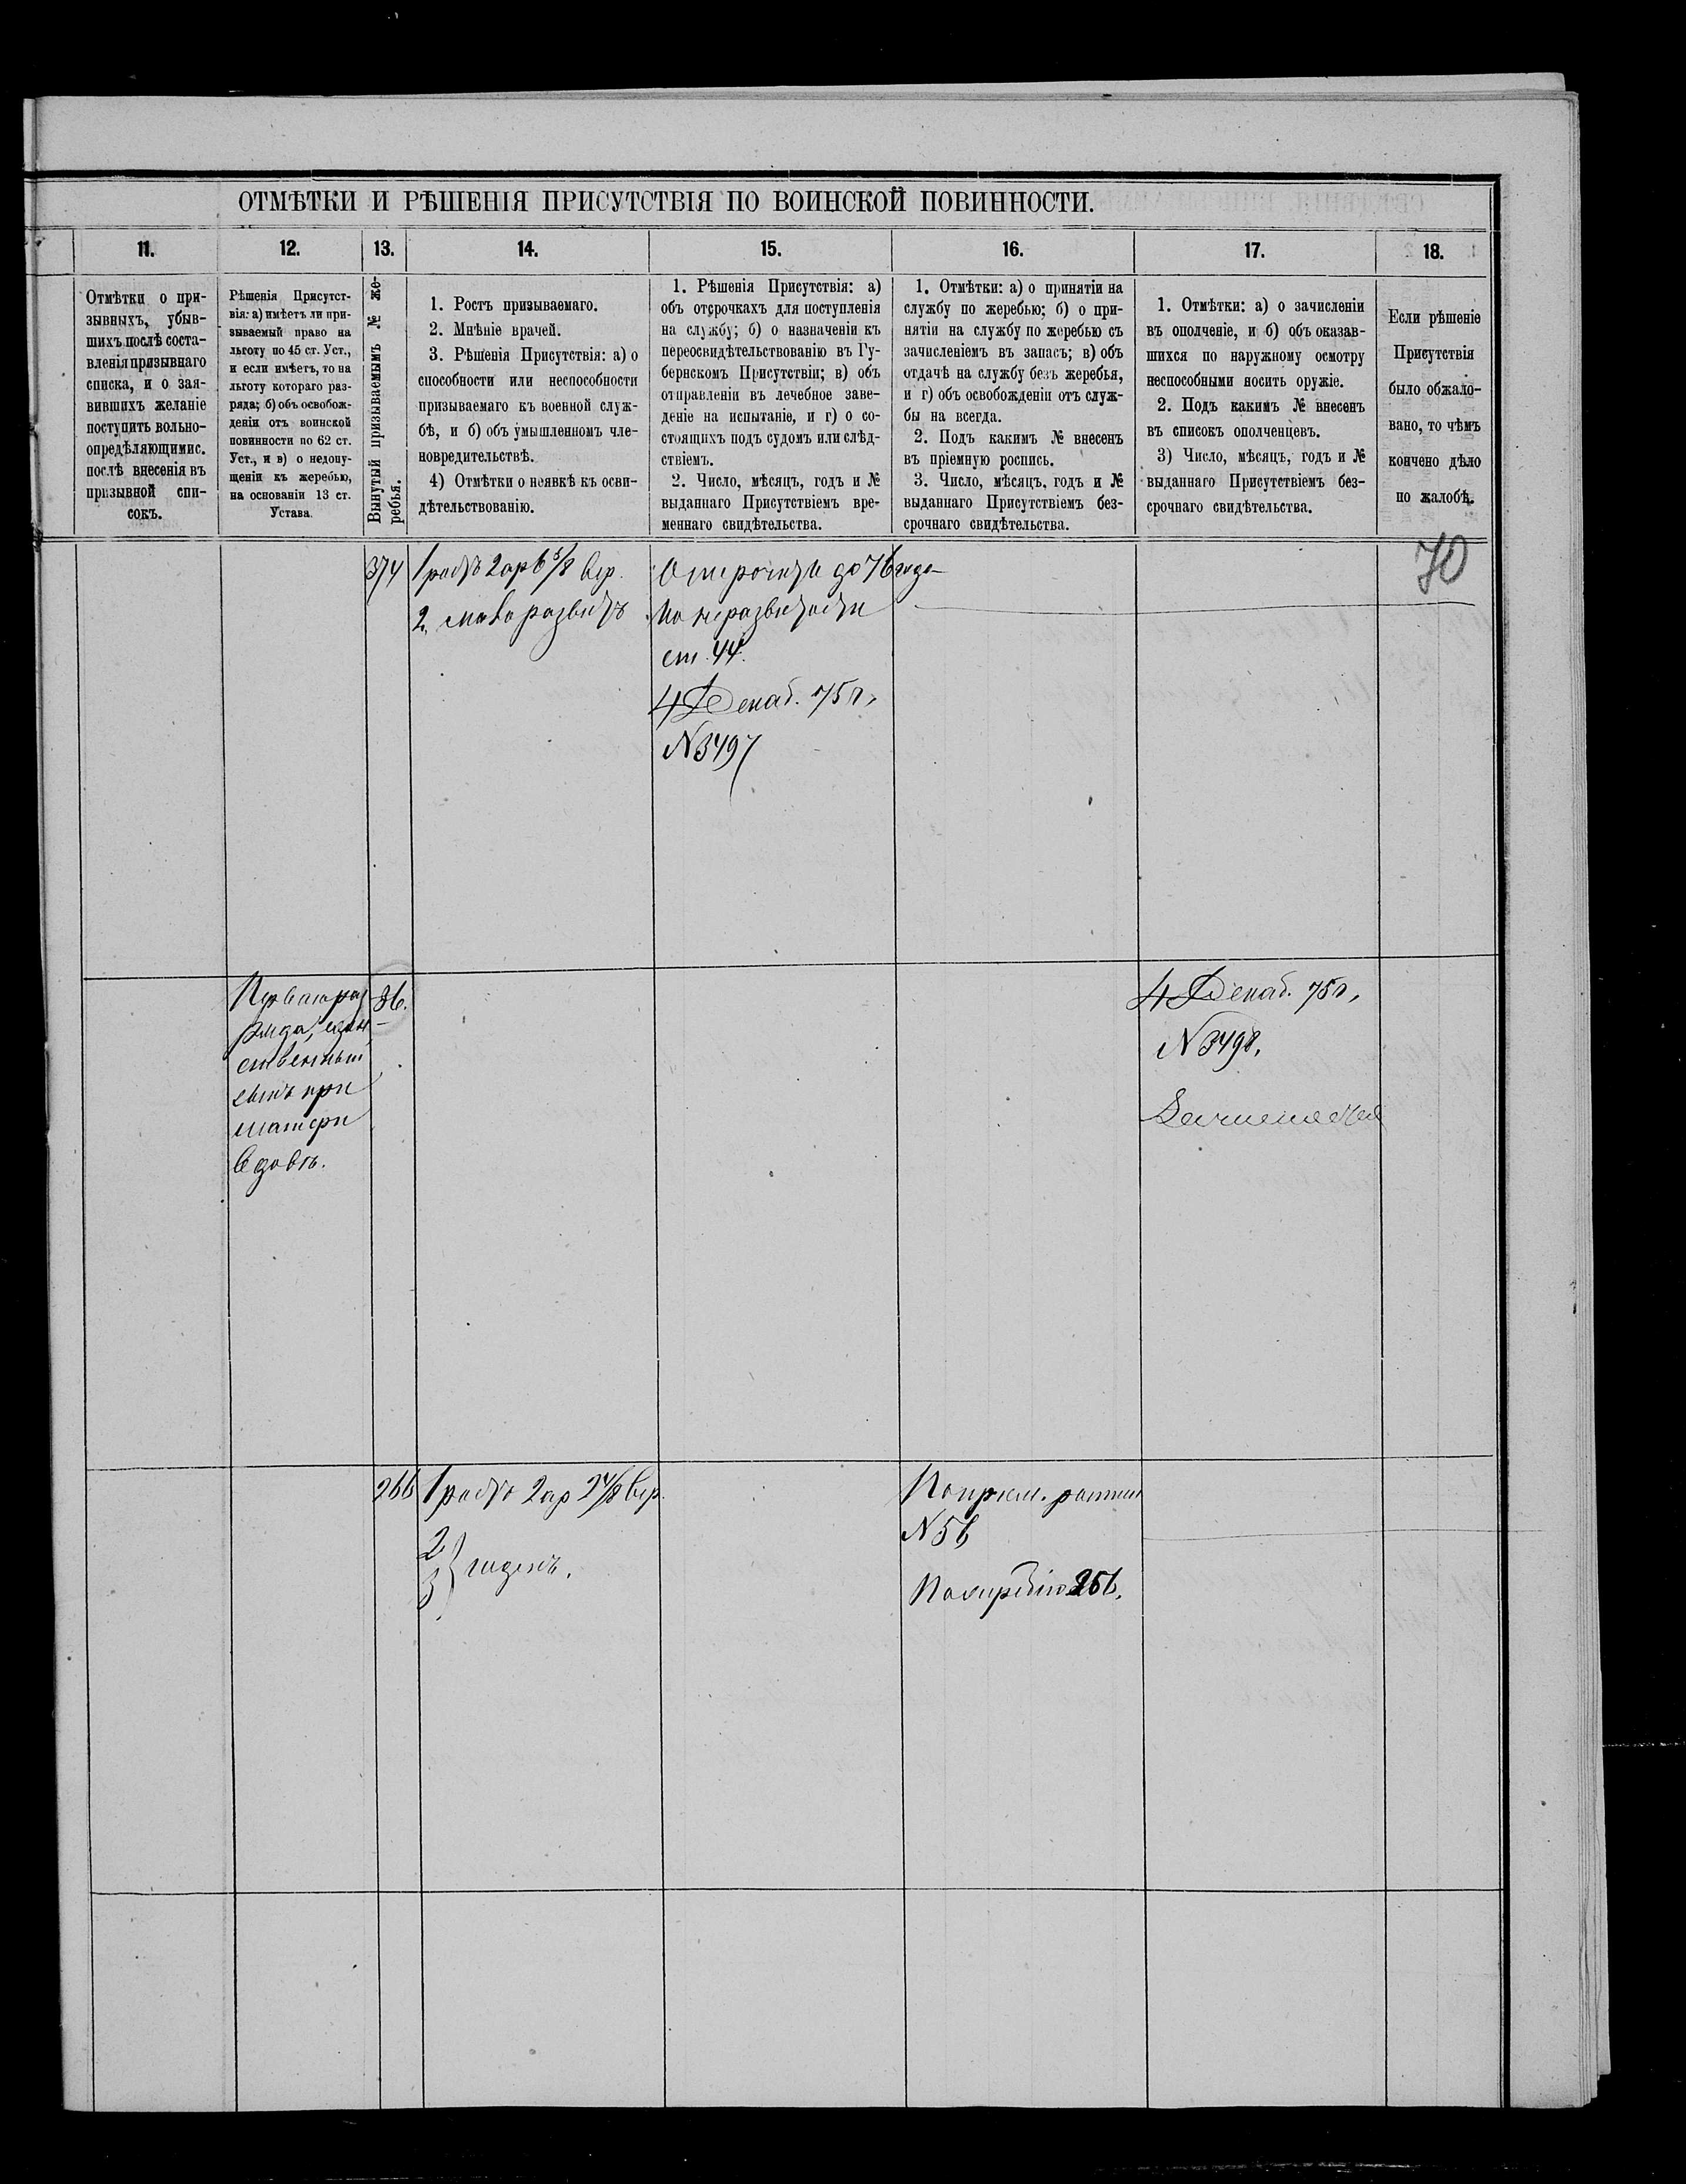 ОТМѢТКИ И РѢШЕНІЯ ПРИСУТСТВІЯ ПО ВОИНСКОЙ ПОВИННОСТИ.
11.
12.
13.
14.
15.
16.
17.
18.
Отмѣтки о при-
зывныхъ, убыв-
шихъ послѣ соста-
вленія призывнаго
списка, и о зая-
вившихъ желаніе
поступить вольно-
опредѣляющимис.
послѣ внесенія въ
призывной спи-
сокъ.
Рѣшенія Присутст-
вія: а) имѣетъ ли при-
зываемый право на
льготу по 45 ст. Уст.,
и если имѣетъ, то на
льготу котораго раз-
ряда; б) объ освобож-
деніи отъ воинской
повинности по 62 ст.
Уст., и в) о недопу-
щеніи къ жеребью,
на основаніи 13 ст.
Устава.
Вынутый призываемымъ № же-
ребья.
1. Ростъ призываемаго.
2. Мнѣніе врачей.
3. Рѣшенія Присутствія: а) о
способности или неспособности
призываемаго къ военной служ-
бѣ, и б) объ умышленномъ чле-
новредительствѣ.
4) Отмѣтки о неявкѣ къ осви-
дѣтельствованію.
1. Рѣшенія Присутствія: а)
объ отсрочкахъ для поступленія
на службу; б) о назначеніи къ
переосвидѣтельствованію въ Гу-
бернскомъ Присутствіи; в) объ
отправленіи въ лечебное заве-
деніе на испытаніе, и г) о со-
стоящихъ подъ судомъ или слѣд-
ствіемъ.
2. Число, мѣсяцъ, годъ и №
выданнаго Присутствіемъ вре-
меннаго свидѣтельства.
1. Отмѣтки: а) о принятіи на
службу по жеребью; б) о при-
нятіи на службу по жеребью съ
зачисленіемъ въ запасъ; в) объ
отдачѣ на службу безъ жеребья,
и г) объ освобожденіи отъ служ-
бы на всегда.
2. Подъ какимъ № внесенъ
въ пріемную роспись.
3. Число, мѣсяцъ, годъ и №
выданнаго Присутствіемъ без-
срочнаго свидѣтельства.
1. Отмѣтки: а) о зачисленіи
въ ополченіе, и б) объ оказав-
шихся по наружному осмотру
неспособными носить оружіе.
2. Подъ какимъ № внесенъ
въ списокъ ополченцевъ.
3) Число, мѣсяцъ, годъ и №
выданнаго Присутствіемъ без-
срочнаго свидѣтельства.
Если рѣшеніе
Присутствія
было обжало-
вано, то чѣмъ
кончено дѣло
по жалобѣ.
70
374
1 ростъ 2 ар 6 5/8 вер.
2. слабо развитъ
Отсрочить до 76 года
по неразвитости
ст. 44.
4 Декаб. 75 г.
N 3497
Перваго раз
ряда, един
ственный
сынъ при
матери
вдовѣ.
36.
4 Декаб. 75 г.
N 3498.
266
1 ростъ 2 ар 2 4/8 вер.
2
3
годенъ.
По прием. роспи
N 56
По жеребью 256.